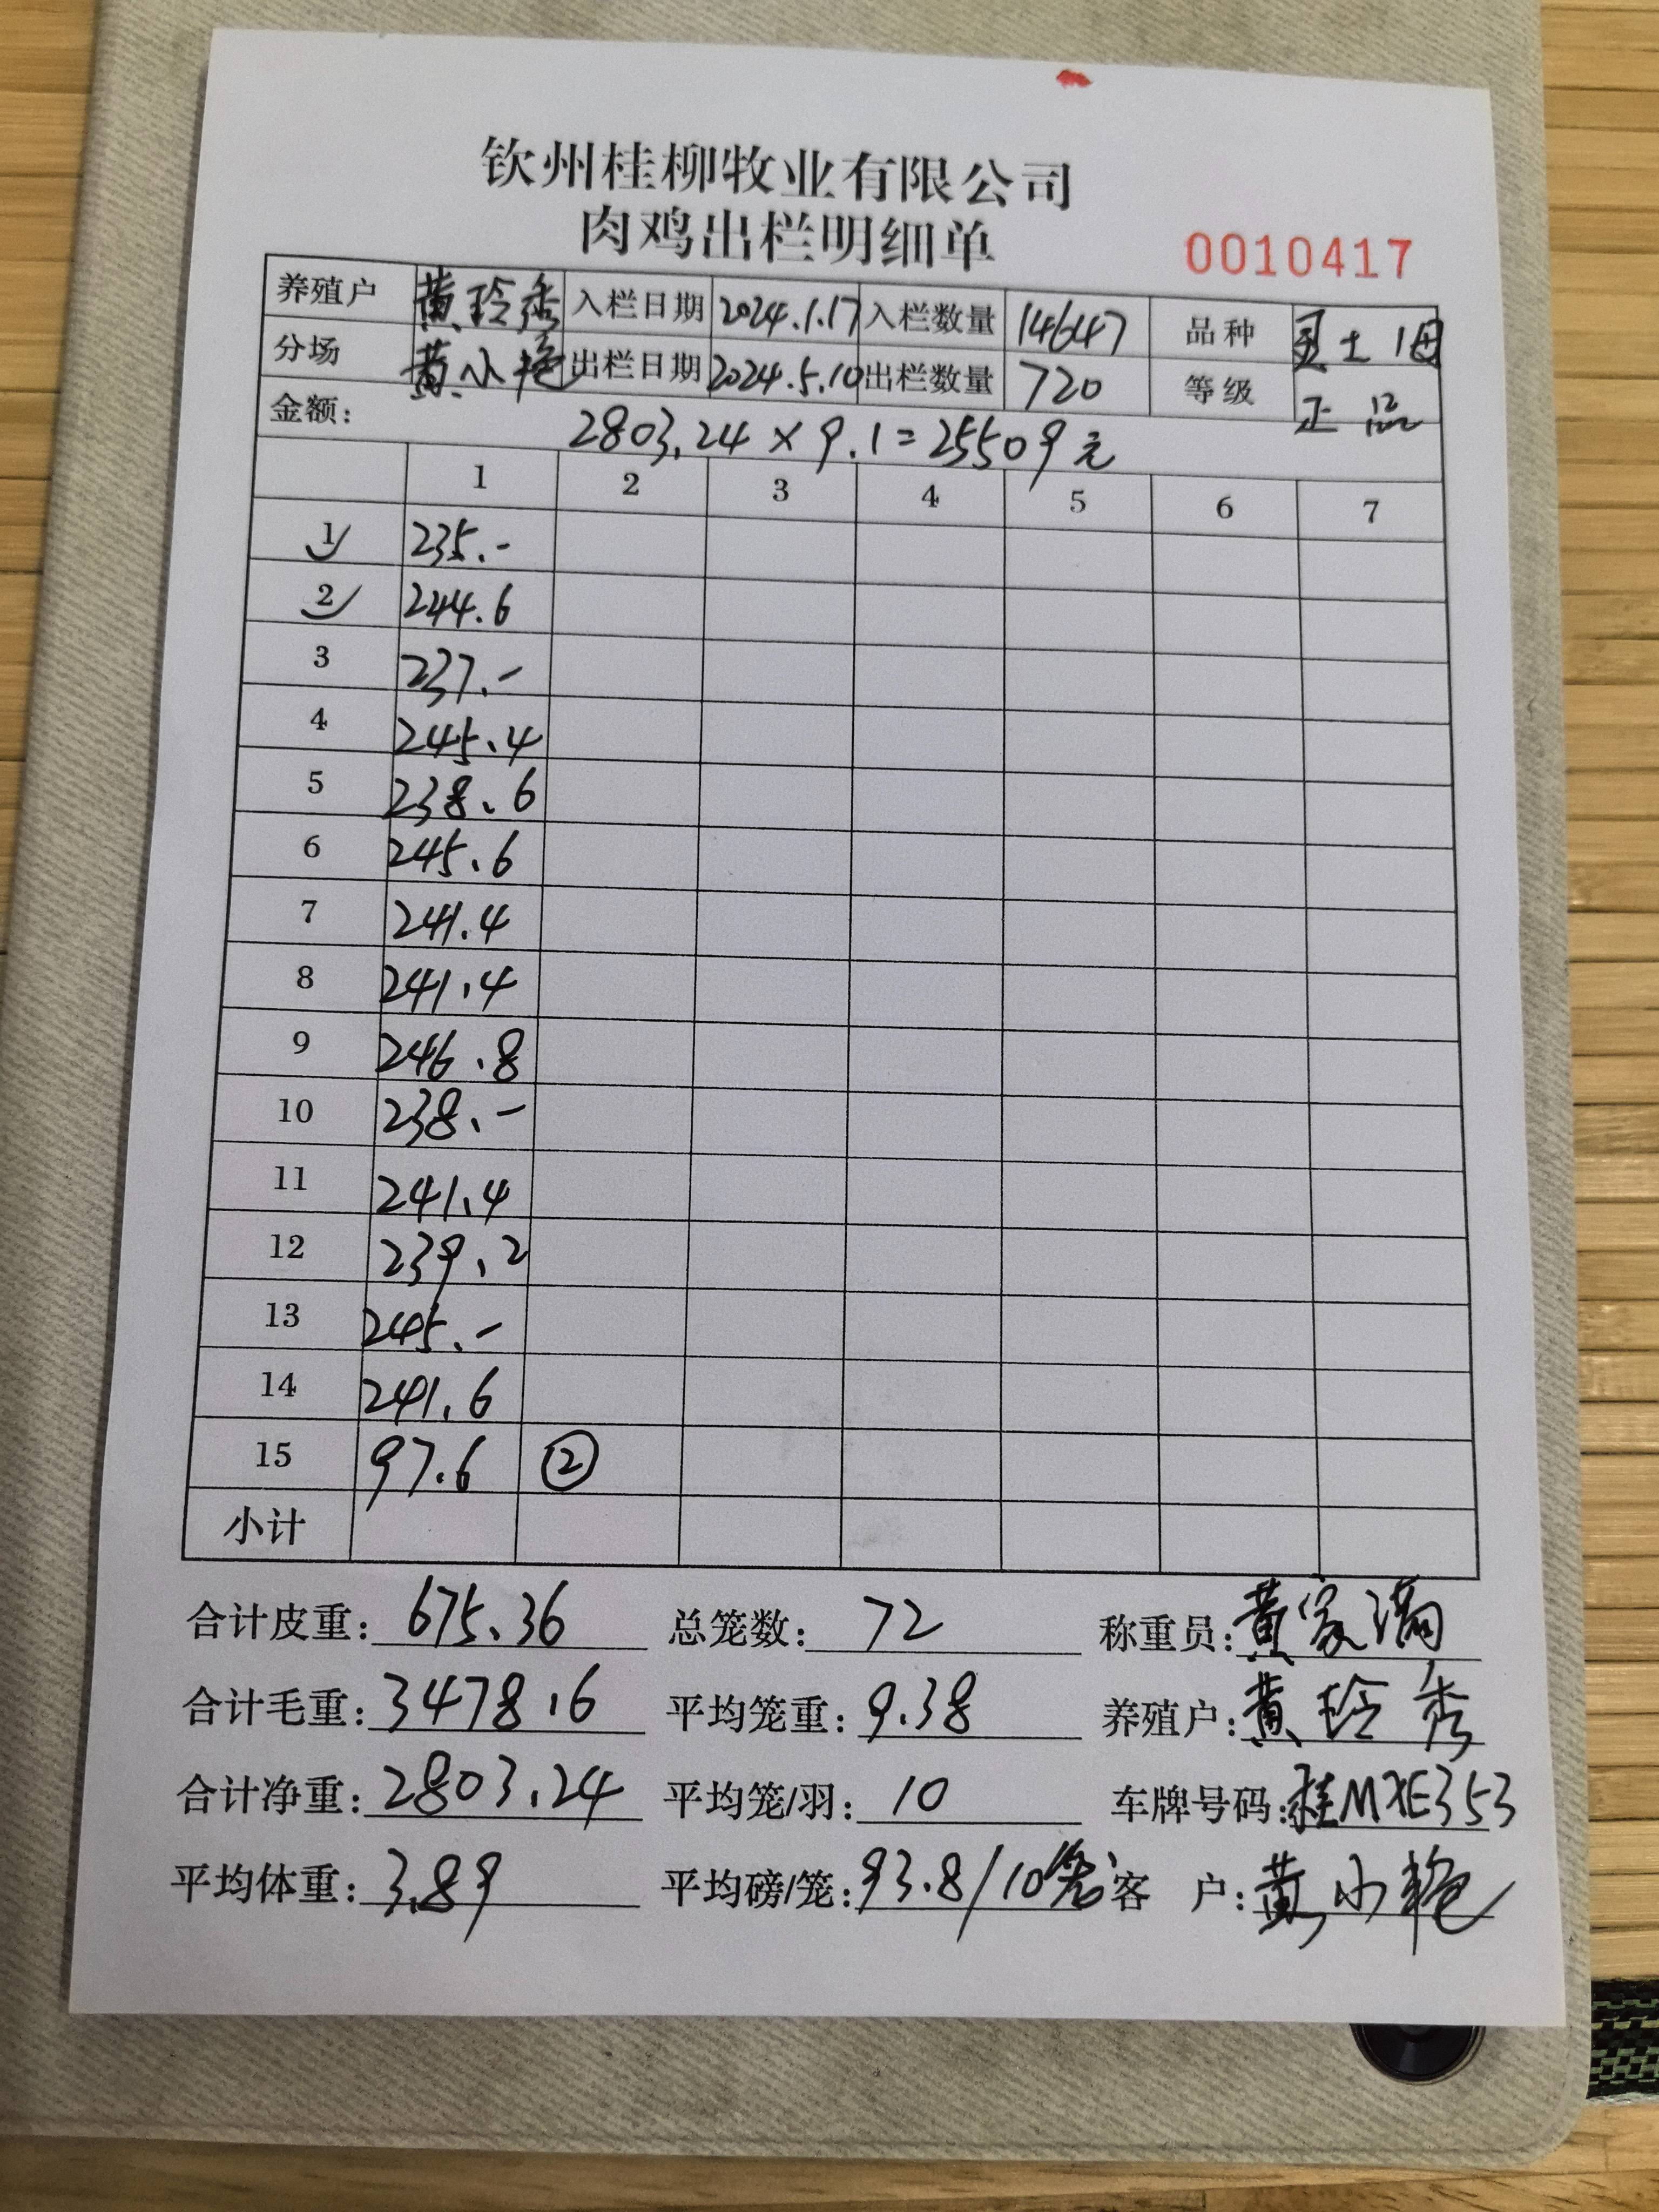 钦州桂柳牧业有限公司
肉鸡出栏明细单
0010417
养殖户 黄玲秀 入栏日期 2024.1.17 入栏数量 14647 品种 土1
分场 黄小艳 出栏日期 2024.5.10 出栏数量 720 等级 正品
金额: 2803.24 × 9.1 = 25509元
1 2 3 4 5 6 7
1 235.-
2 244.6
3 237.-
4 245.4
5 238.6
6 245.6
7 241.4
8 241.4
9 246.8
10 238.-
11 241.4
12 239.2
13 245.-
14 241.6
15 97.6 ②
小计
合计皮重: 675.36 总笼数: 72 称重员: 黄家满
合计毛重: 3478.6 平均笼重: 9.38 养殖户: 黄玲秀
合计净重: 2803.24 平均笼/羽: 10 车牌号码: 桂MXE353
平均体重: 3.89 平均磅/笼: 93.8/10笼 客 户: 黄小艳